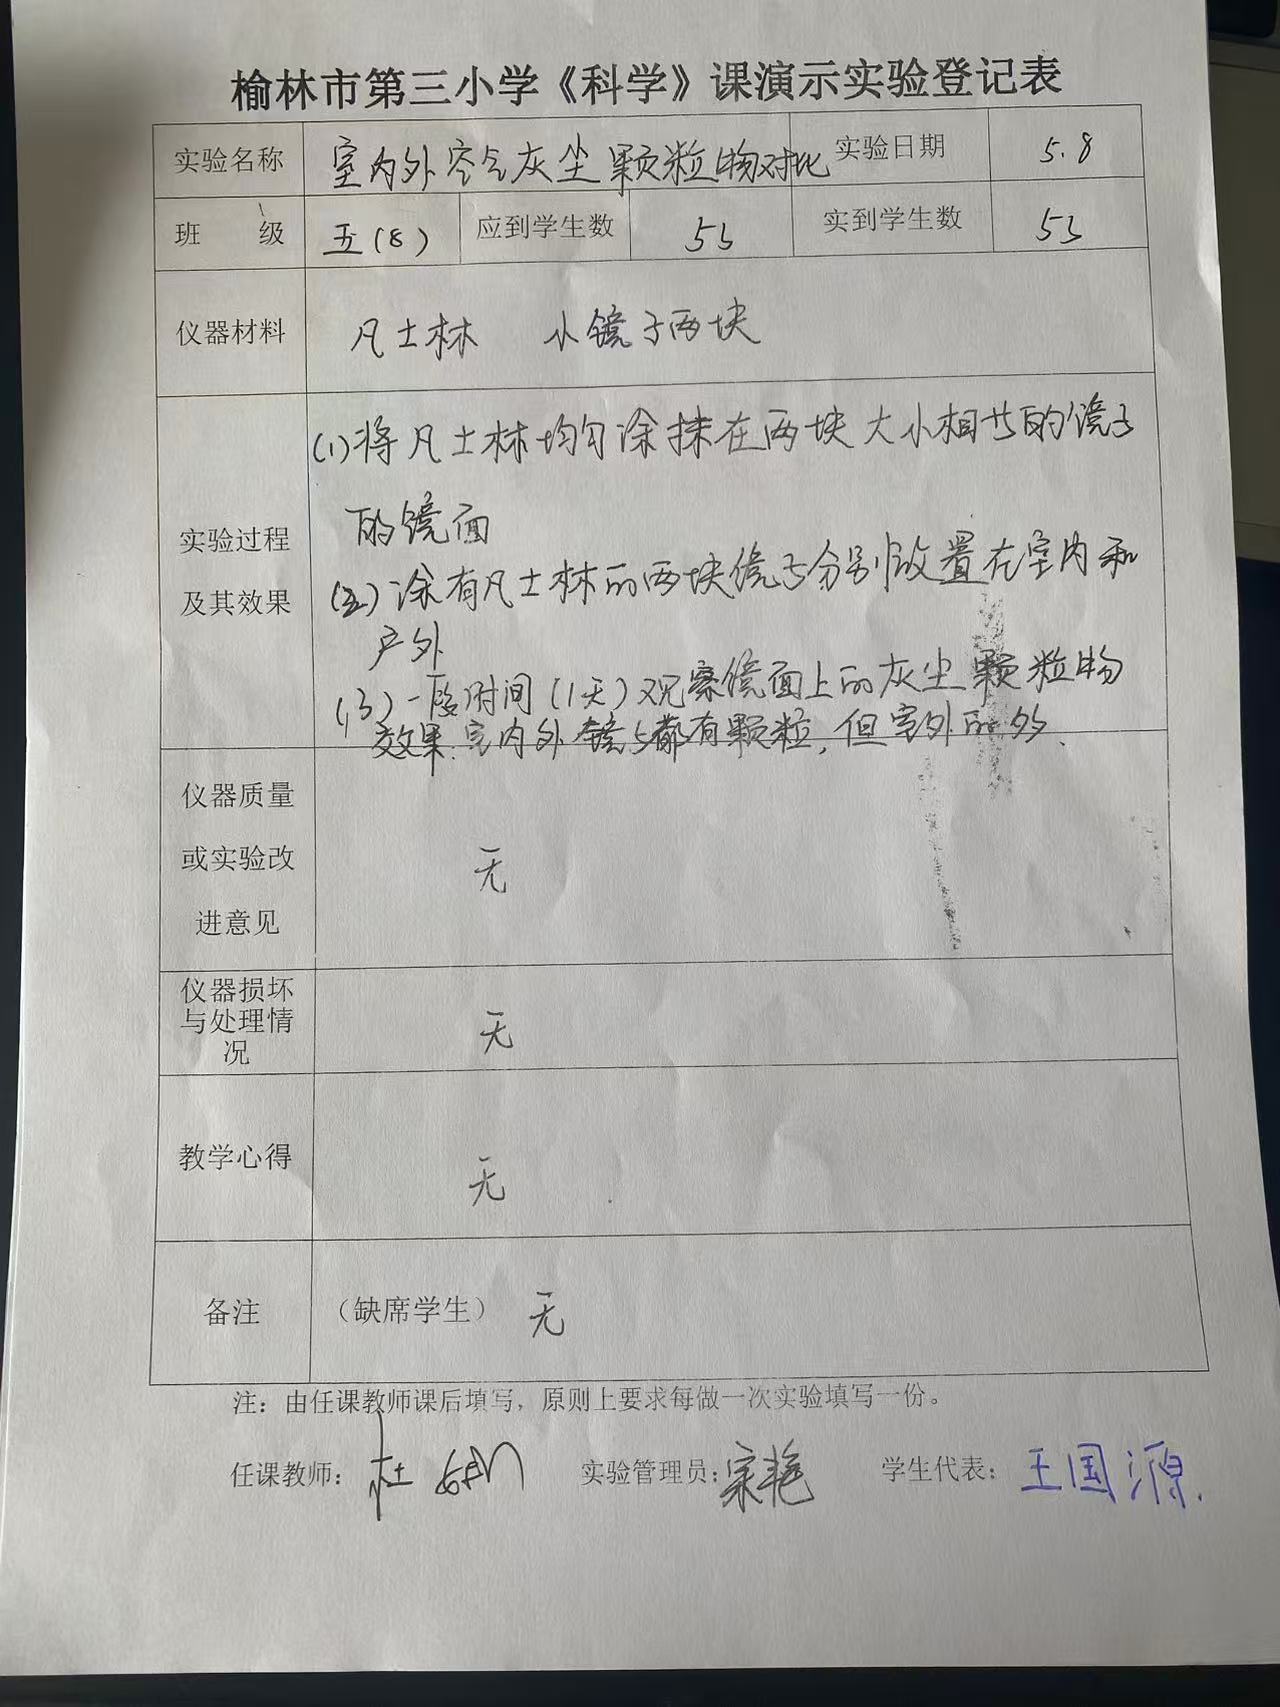 榆林市第三小学《科学》课演示实验登记表
实验名称 室内外空气灰尘颗粒物对比 实验日期 5.8
班 级 五(8) 应到学生数 53 实到学生数 53
仪器材料 凡士林 小镜子两块
(1)将凡士林均匀涂抹在两块大小相当的镜子
的镜面
实验过程
及其效果
(2)涂有凡士林的两块镜子分别放置在室内和
户外
(3)一段时间(1天)观察镜面上的灰尘颗粒物
效果:室内外镜子都有颗粒,但室外的多.
仪器质量
或实验改
进意见
无
仪器损坏
与处理情
况
无
教学心得
无
备注 (缺席学生) 无
注：由任课教师课后填写，原则上要求每做一次实验填写一份。
任课教师: 杜 实验管理员: 宋艳 学生代表: 王国源.